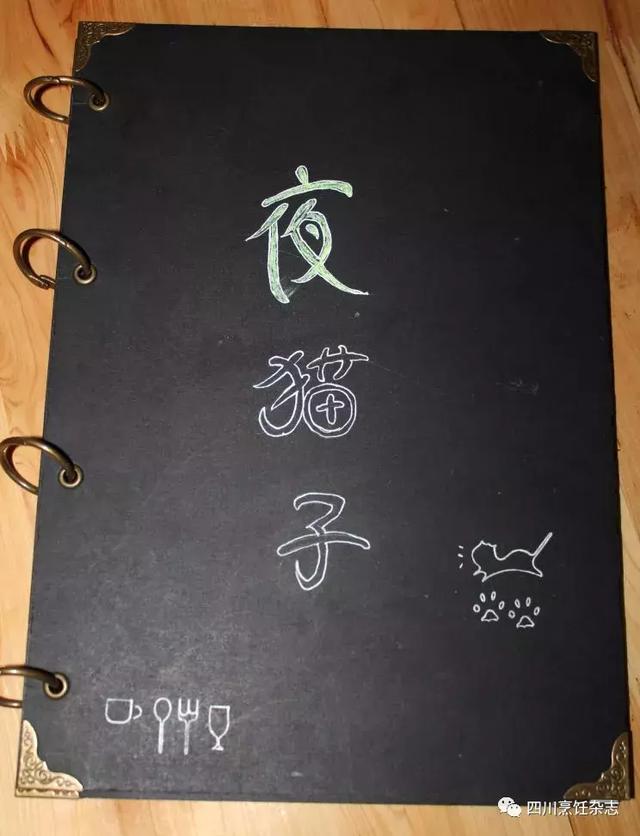 夜
猫
子
四川烹饪杂志